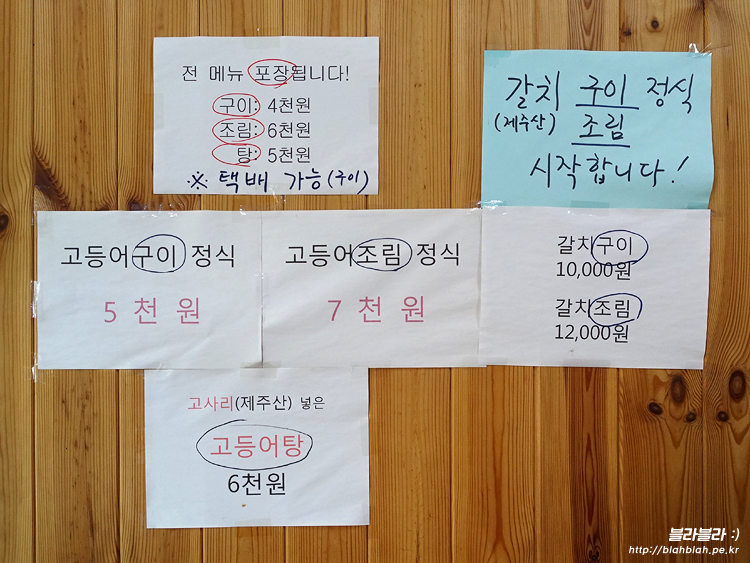 전 메뉴 포장됩니다!
구이: 4천원
조림: 6천원
탕: 5천원
※ 택배 가능 (구이)
갈치 구이 정식
(제주산) 조림
시작합니다!
고등어구이 정식
5천원
고등어조림 정식
7천원
갈치구이
10,000원
갈치조림
12,000원
고사리(제주산) 넣은
고등어탕
6천원
블라블라 :)
http://blahblah.pe.kr